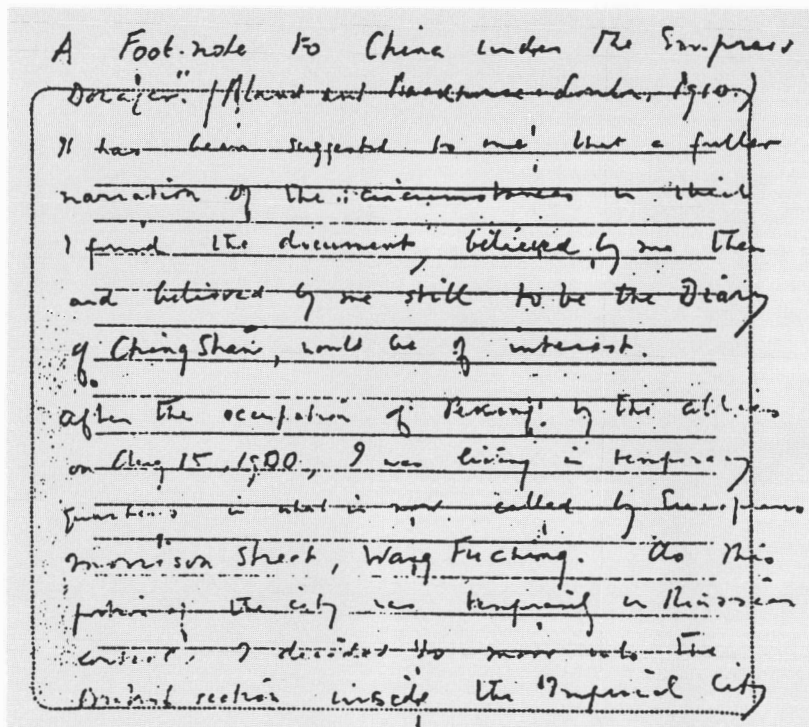 A Foot-note to China under the Empress
Dowager." (Bland and Backhouse - London, 1910.)
It has been suggested to me that a fuller
narration of the circumstances in which
I found the document, believed by me then
and believed by me still to be the Diary
of Ching Shan, would be of interest.
After the occupation of Peking by the allies
on Aug 15, 1900, I was living in temporary
quarters in what is now called by Europeans
Morrison Street, Wang Fu Ching. As this
portion of the city was temporarily in Russian
control, I decided to move into the
British section inside the Imperial City